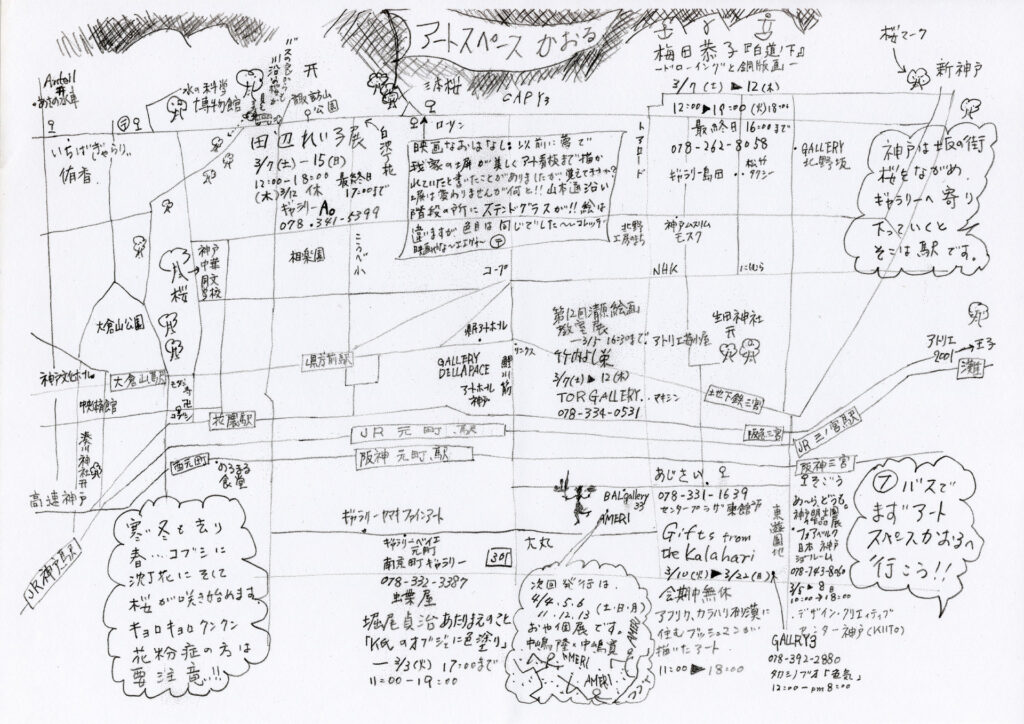 アートスペース かおる
梅田恭子『白道ノ下』
ードローイングと銅版画ー
3/7 (土) ▶ 12(木)
12:00▶19:00 (火)18:00
最終日 16:00まで
078-262-8058
ギャラリー島田
GALLERY
北野坂
桜マーク
新神戸
神戸は坂の街
桜をながめ
ギャラリーへ寄り
下っていくと
そこは駅です。
水の科学
博物館
諏訪山
公園
三本桜
CAPY3
いちばぎゃらりぃ
侑香.
田辺れい子展
3/7(土)-15(日)
12:00-18:00 最終日
(木)3/12 休 17:00まで
ギャラリーAo
078-341-5399
ローソン
トアロード
映画なおはなし。以前に夢で
階段の所にステンドグラスが!!絵は
北野
工房のまち
神戸ムスリム
モスク
神戸
中華
同文
学校
相楽園
こうべ小
コープ
NHK
にしむら
桜
大倉山公園
大倉山駅
県庁前駅
神戸文化ホール
中央図書館
湊川神社
花隈駅
西元町
のろまる
食堂
高速神戸
JR神戸駅
県民アートホール
GALLERY
DELLAPACE
アートホール
神戸
鯉川筋
サンクス
第12回清原絵画
教室展
ー3/5 16:30まで
竹内よし栄
3/7(土)▶12(木)
TOR GALLERY
078-334-0531
アトリエ苺小屋
マキシン
生田神社
地下鉄三宮
アトリエ
2001
→王子
灘
JR 元町 駅
阪神 元町 駅
阪急三宮
JR 三ノ宮駅
阪神三宮
そごう
BAL gallery
33
AMERI
あじさい
078-331-1639
センタープラザ東館
Gifts from
the Kalahari
3/10(火)▶3/22(日)
会期中無休
アフリカ、カラハリ砂漠に
住むブッシュマンが
描いたアート
11:00▶18:00
東遊園地
日本 神戸
ショールーム
078-743-8060
3/5▶8
10:00→18:00
デザイン・クリエイティブ
センター神戸(KIITO)
GALLRY3
078-392-2880
タカシノブオ「蚕気」
12:00-pm8:00
⑦ バスで
まずアート
スペースかおるへ
行こう!!
寒い冬も去り
春…コブシに
沈丁花にそして
桜が咲き始めます.
キョロキョロクンクン
花粉症の方は
要注意!!!
ギャラリーヤマキファインアート
ギャラリーベイエ
元町
南京町ギャラリー
078-332-3387
301
大丸
虫葉屋
堀尾貞治あたりまえのこと
「K氏のオブジェに色塗り」
ー3/3(火) 17:00まで
11:00-19:00
次回発行は
4/4.5.6
11.12.13 (土.日.月)
おや個展です。
中嶋隆と中嶋寛
AMERI
AMERI